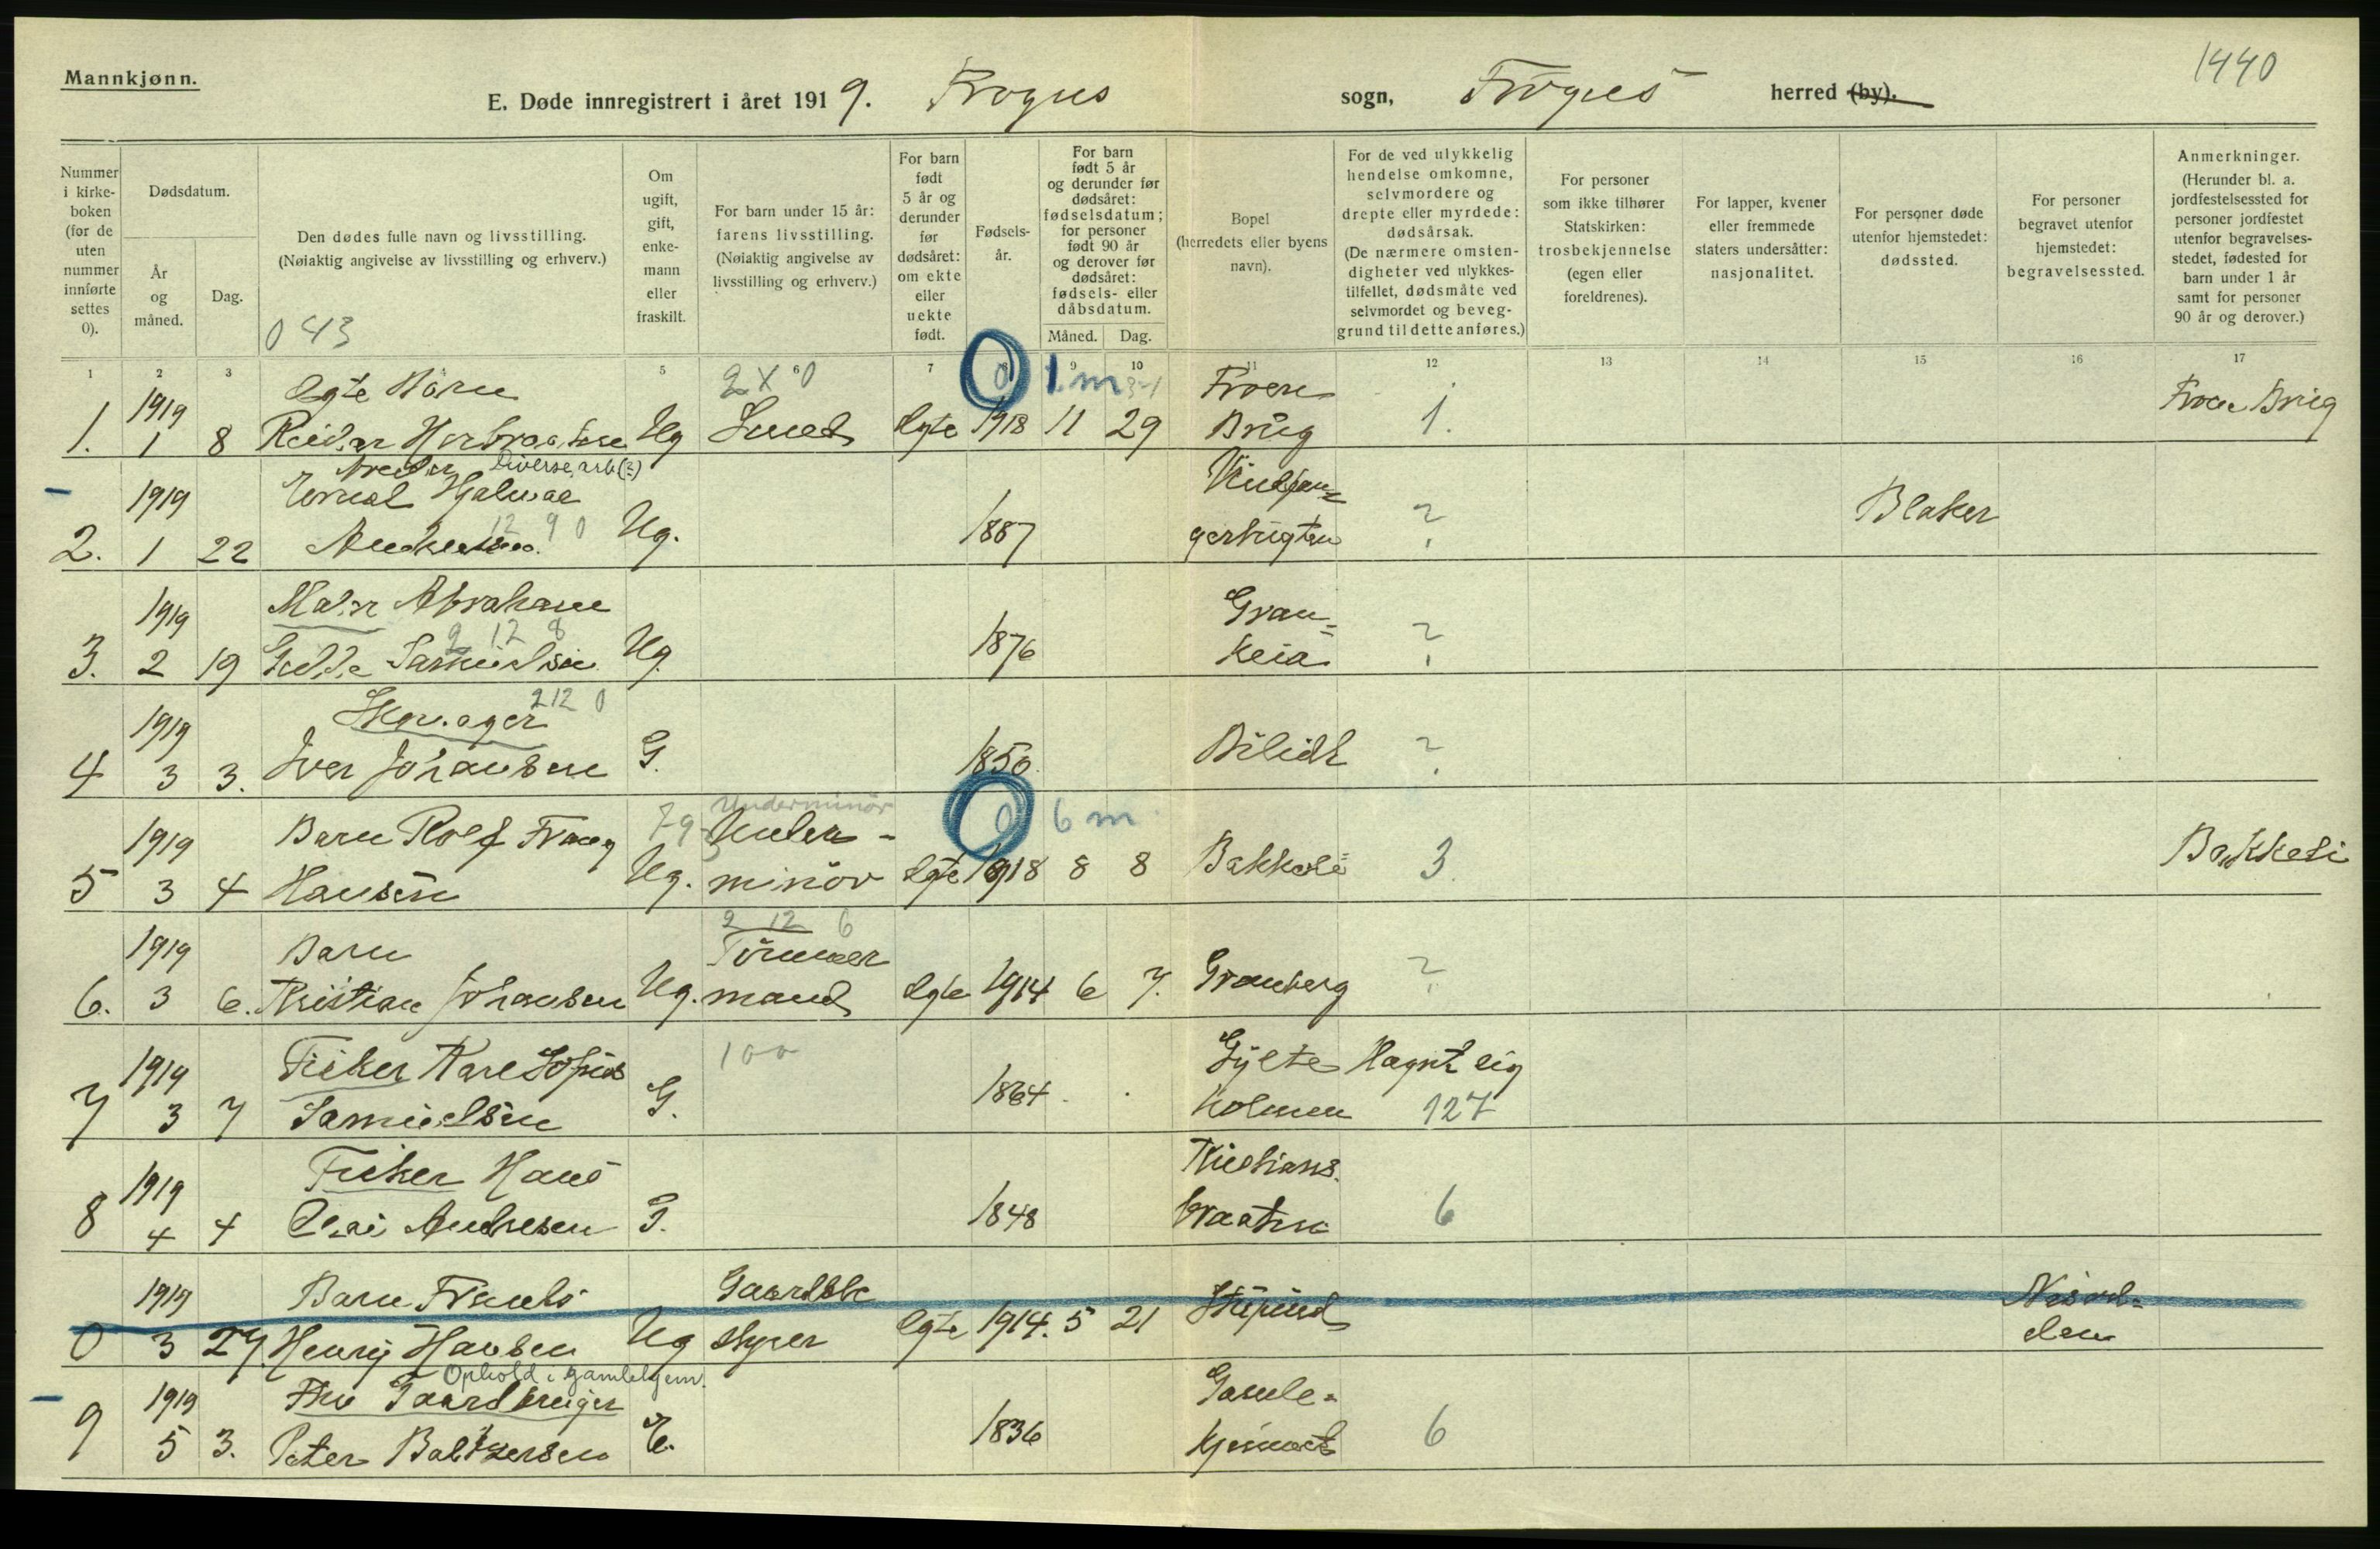 Mannkjønn.
1440
E. Døde innregistrert i året 1919. Frogns sogn, Frogns herred (by).
Nummer i kirke- boken (for de uten nummer innførte settes 0).
Dødsdatum.
År og måned.
Dag.
Den dødes fulle navn og livsstilling.
(Nøiaktig angivelse av livsstilling og erhverv.)
043
Om ugift, gift, enke- mann eller fraskilt.
For barn under 15 år: farens livsstilling. (Nøiaktig angivelse av livsstilling og erhverv.)
For barn født 5 år og derunder før dødsåret: om ekte eller uekte født.
Fødsels- år.
For barn født 5 år og derunder før dødsåret: fødselsdatum; for personer født 90 år og derover før dødsåret: fødsels- eller dåbsdatum.
Måned. Dag.
Bopel (herredets eller byens navn).
For de ved ulykkelig hendelse omkomne, selvmordere og drepte eller myrdede: dødsårsak. (De nærmere omsten- digheter ved ulykkes- tilfellet, dødsmåte ved selvmordet og beveg- grund til dette anføres.)
For personer som ikke tilhører Statskirken: trosbekjennelse (egen eller foreldrenes).
For lapper, kvener eller fremmede staters undersåtter: nasjonalitet.
For personer døde utenfor hjemstedet: dødssted.
For personer begravet utenfor hjemstedet: begravelsessted.
Anmerkninger. (Herunder bl. a. jordfestelsessted for personer jordfestet utenfor begravelses- stedet, fødested for barn under 1 år samt for personer 90 år og derover.)
1 2 3 5 6 7 8 9 10 11 12 13 14 15 16 17
1919 Egte Barn 2 X 0 0 1 m Froen Froen Brug
1. 1 8 Reidar Ug Smed Egte 1918 11 29 Brug 1.
Arbeider Diverse arb (?)
1919 Hjalmar
2. 1 22 Andersen 12 9 0 Ug. 1887 ? Blaker
1919 Maler Abraham Gran-
3. 2 19 Samuelsen 2 12 8 Ug. 1876 ?
1919 Skomager 212 0
4 3 3. Iver Johansen G. 1850. ?
Underminör
1919 Barn Rolf 79 Under- 0 6 m
5 3 4 Hansen Ug. minör Egte 1918 8 8 Bakkeli 3. Bakkeli
2 12 6
1919 Barn Tömmer
6. 3 6. Kristian Johansen Ug. mand Egte 1914 6 7. Granberg ?
1919 Fisker Karl 100 Gylte
7 3 7 Samuelsen G. 1864. holmen 127
1919 Fisker Hans Kristians.
8 4 4 Olai Andresen G. 1848 braaten 6
1919 Barn Gaardbe
0 3 27. Henry Hansen Ug styrer Egte 1914. 5 21
Ophold i gamlehjem.
1919 Fhv Gaardbruger Gamle-
9 5 3. Peter Baltzersen E. 1836 hjemmet 6